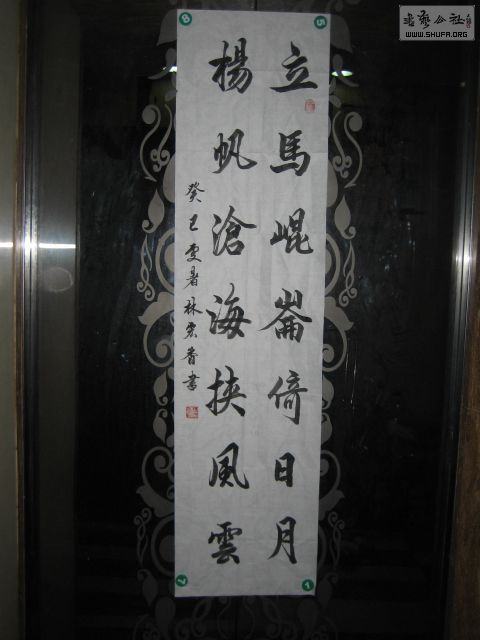 立馬崐崙倚日月
楊帆滄海挾風雲
癸巳處暑林宏香書
書藝公社
WWW.SHUFA.ORG